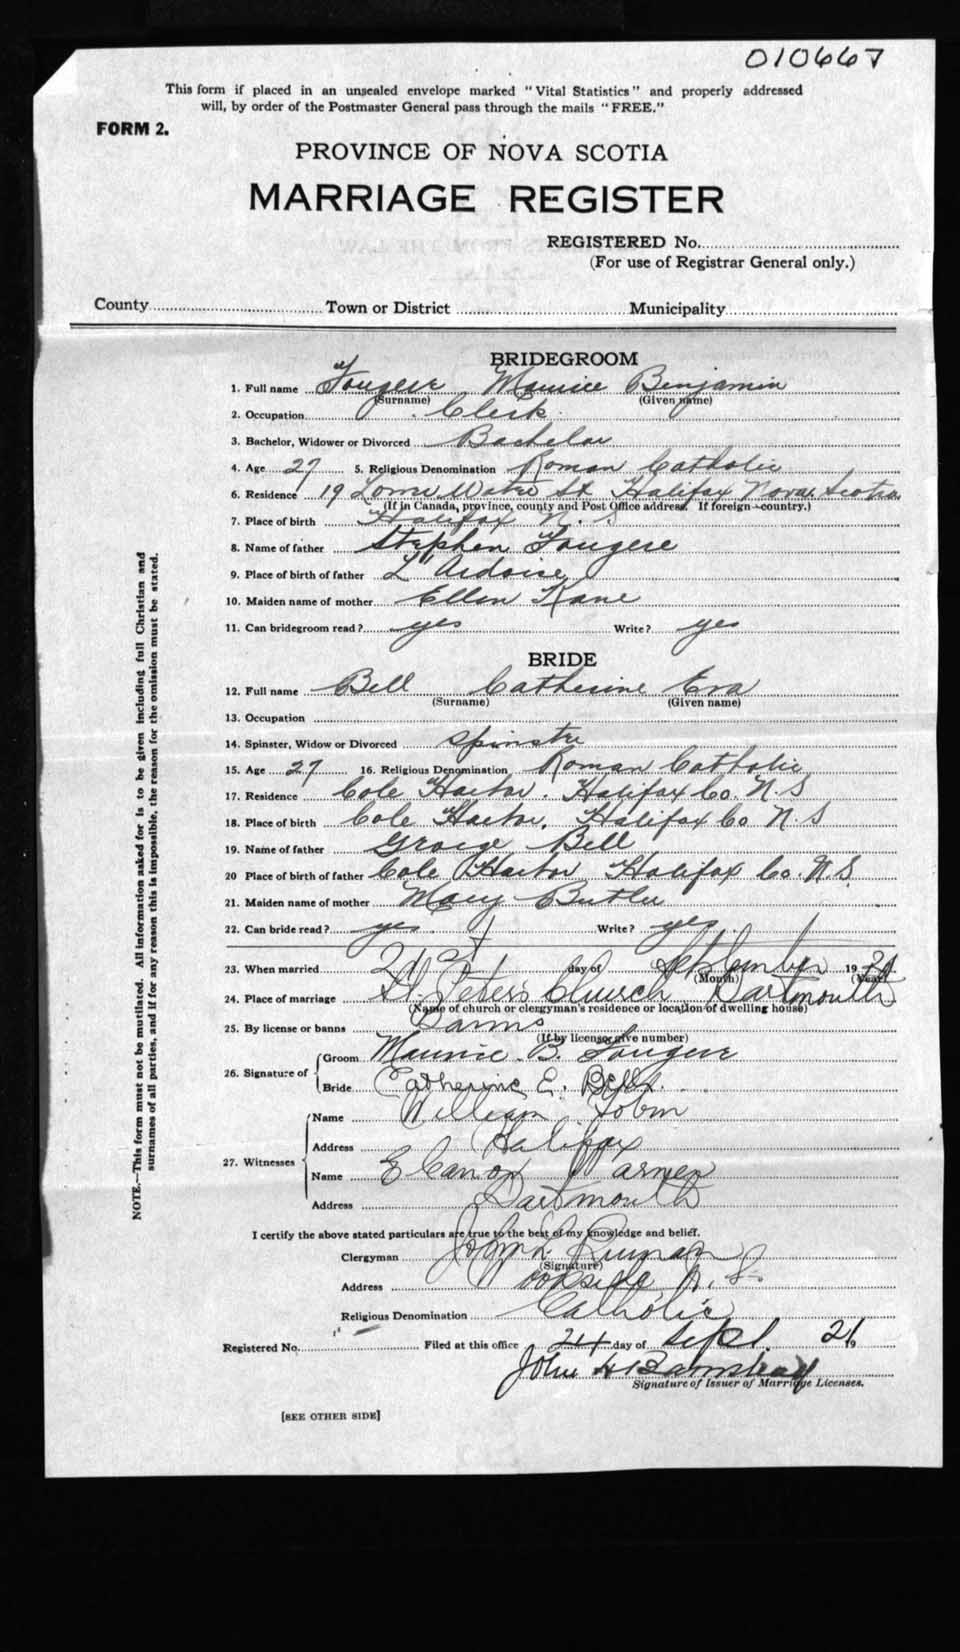 010667
This form if placed in an unsealed envelope marked "Vital Statistics" and properly addressed
will, by order of the Postmaster General pass through the mails "FREE."
FORM 2.
PROVINCE OF NOVA SCOTIA
MARRIAGE REGISTER
REGISTERED No.
(For use of Registrar General only.)
County Town or District Municipality
BRIDEGROOM
1. Full name Fougere Maurice Benjamin
(Surname) (Given name)
2. Occupation Clerk
3. Bachelor, Widower or Divorced Bachelor
4. Age 27 5. Religious Denomination Roman Catholic
6. Residence 19 Lower Water St Halifax Nova Scotia
(If in Canada, province, county and Post Office address. If foreign—country.)
7. Place of birth Halifax N. S
8. Name of father Stephen Fougere
9. Place of birth of father L'Ardoise
10. Maiden name of mother Ellen Kane
11. Can bridegroom read? yes Write? yes
BRIDE
12. Full name Bell Catherine Eva
(Surname) (Given name)
13. Occupation
14. Spinster, Widow or Divorced Spinster
15. Age 27 16. Religious Denomination Roman Catholic
17. Residence Cole Harbor. Halifax Co. N. S
18. Place of birth Cole Harbor, Halifax Co N S
19. Name of father George Bell
20 Place of birth of father Cole Harbor Halifax Co. N. S.
21. Maiden name of mother Mary Butler
22. Can bride read? yes Write? yes
23. When married 21st day of September 19
(Month) (Year)
24. Place of marriage St. Peter's Church Dartmouth
(Name of church or clergyman's residence or location of dwelling house)
25. By license or banns Banns
(If by license, give number)
26. Signature of Groom Maurice B. Fougere
Bride Catherine E. Bell.
27. Witnesses Name William Tobin
Address Halifax
Name Eleanor
Address Dartmouth
I certify the above stated particulars are true to the best of my knowledge and belief.
Clergyman John L
(Signature)
Address N. S.
Religious Denomination Catholic
Registered No. Filed at this office 24 day of Sept. 19
John H
Signature of Issuer of Marriage Licenses.
[SEE OTHER SIDE]
NOTE.—This form must not be mutilated. All information asked for is to be given including full Christian and
surnames of all parties, and if for any reason this is impossible, the reason for the omission must be stated.